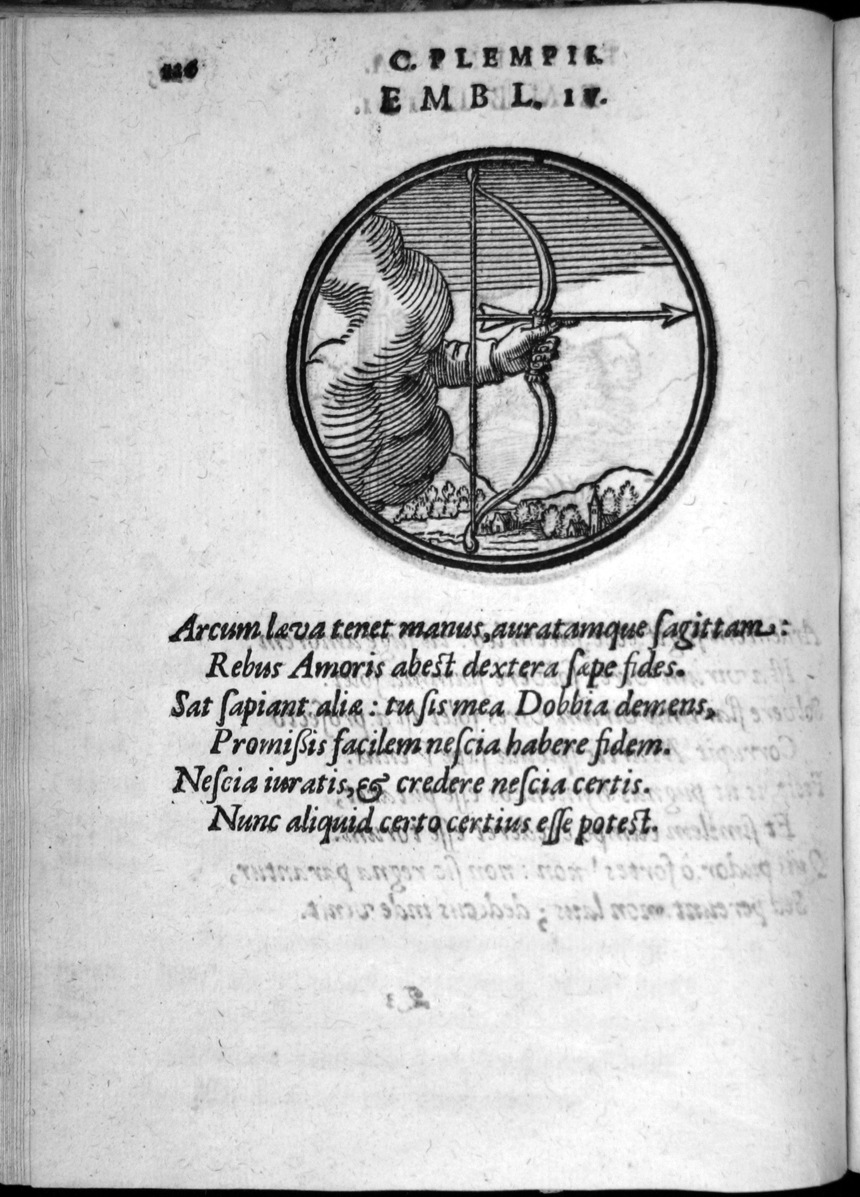 126
C. PLEMPII.
EMBL. IV.
Arcum læva tenet manus, auratamque ſagittam:
Rebus Amoris abest dextera ſæpe fides.
Sat ſapiant aliæ: tu ſis mea Dobbia demens,
Promißis facilem neſcia habere fidem.
Neſcia iuratis, & credere neſcia certis.
Nunc aliquid certo certius eſſe potest.